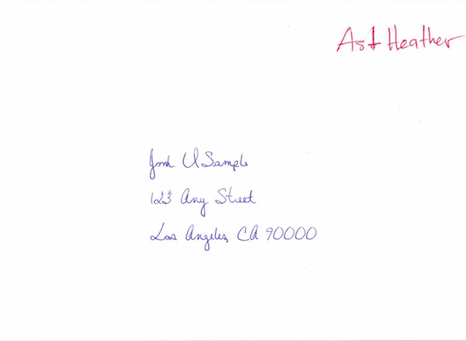 Heather
USample
123 Any Street
Los Angeles, CA 90000